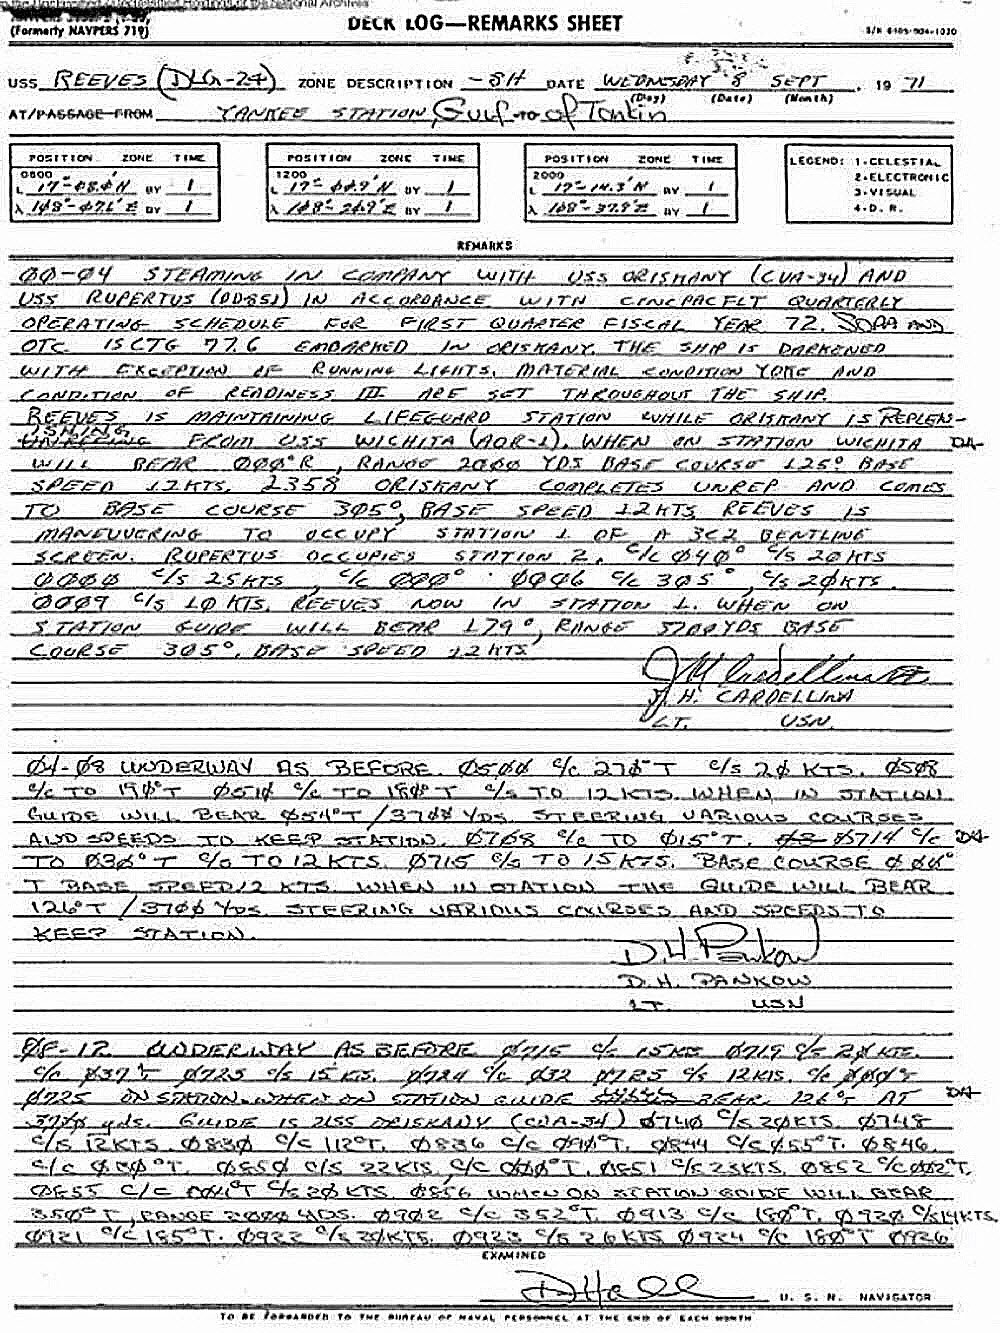 (Formerly NAVPERS 719)
DECK LOG—REMARKS SHEET
USS REEVES (DLG-24) ZONE DESCRIPTION -8H DATE WEDNESDAY 8 SEPT , 19 71
(Day) (Date) (Month)
AT/PASSAGE FROM YANKEE STATION, Gulf TO of Tonkin
POSITION ZONE TIME
0800
BY 1
BY 1
POSITION ZONE TIME
1200
BY 1
BY 1
POSITION ZONE TIME
2000
L 17°-14.3'N BY 1
BY 1
LEGEND: 1-CELESTIAL
2-ELECTRONIC
3-VISUAL
4-D. R.
REMARKS
00-04 STEAMING IN COMPANY WITH USS ORISKANY (CVA-34) AND
USS RUPERTUS (DD851) IN ACCORDANCE WITH CINCPACFLT QUARTERLY
OPERATING SCHEDULE FOR FIRST QUARTER FISCAL YEAR 72. SOPA AND
OTC IS CTG 77.6 EMBARKED IN ORISKANY. THE SHIP IS DARKENED
WITH EXCEPTION OF RUNNING LIGHTS. MATERIAL CONDITION YOKE AND
CONDITION OF READINESS III ARE SET THROUGHOUT THE SHIP.
REEVES IS MAINTAINING LIFEGUARD STATION WHILE ORISKANY IS REPLEN-
ISHING FROM USS WICHITA (AOR-1). WHEN ON STATION WICHITA
WILL BEAR 000°R, RANGE 2000 YDS BASE COURSE 125° BASE
SPEED 12KTS. 2358 ORISKANY COMPLETES UNREP AND COMES
TO BASE COURSE 305°, BASE SPEED 12KTS REEVES IS
MANEUVERING TO OCCUPY STATION 1 OF A 3C2 BENTLINE
SCREEN. RUPERTUS OCCUPIES STATION 2. C/C 040° C/S 20KTS
0000 C/S 25KTS, C/C 000° 0006 C/C 305°, C/S 20KTS.
0009 C/S 10KTS. REEVES NOW IN STATION 1. WHEN ON
STATION GUIDE WILL BEAR 179°, RANGE 3700YDS BASE
COURSE 305°. BASE SPEED 12KTS
J. H. CARDELLINA
LT. USN.
04-08 UNDERWAY AS BEFORE. 0500 C/C 270°T C/S 20 KTS. 0508
C/C TO 190°T 0510 C/C TO 180°T C/S TO 12 KTS. WHEN IN STATION
GUIDE WILL BEAR 054°T/3700 YDS. STEERING VARIOUS COURSES
AND SPEEDS TO KEEP STATION. 0708 C/C TO 015°T. 0714 C/C
TO 030°T C/S TO 12 KTS. 0715 C/S TO 15KTS. BASE COURSE 000°
T BASE SPEED 12 KTS. WHEN IN STATION THE GUIDE WILL BEAR
126°T/3700 YDS. STEERING VARIOUS COURSES AND SPEEDS TO
KEEP STATION.
D.H. Pankow
D. H. PANKOW
LT. USN
08-12 UNDERWAY AS BEFORE 0715 C/S 15KTS 0719 C/S 20KTS.
C/C 037°T 0723 C/S 15 KTS. 0724 C/C 032 0725 C/S 12KTS. C/C 000°T
0725 ON STATION. WHEN ON STATION GUIDE BEAR 126°T AT
3700 yds. GUIDE IS USS ORISKANY (CVA-34) 0740 C/S 20KTS. 0748
C/S 12KTS. 0830 C/C 112°T. 0836 C/C 090°T. 0844 C/C 055°T. 0846
C/C 030°T. 0850 C/S 22 KTS C/C 000°T. 0851 C/S 25KTS. 0852 C/C 002°T.
0855 C/C 004°T C/S 20 KTS. 0856 WHEN ON STATION GUIDE WILL BEAR
350°T, RANGE 2000 YDS. 0902 C/C 352°T. 0913 C/C 180°T. 0920 C/S 14KTS.
0921 C/C 185°T. 0922 C/S 20KTS. 0923 C/S 26KTS 0924 C/C 180°T 0926
EXAMINED
U. S. N. NAVIGATOR
TO BE FORWARDED TO THE BUREAU OF NAVAL PERSONNEL AT THE END OF EACH MONTH